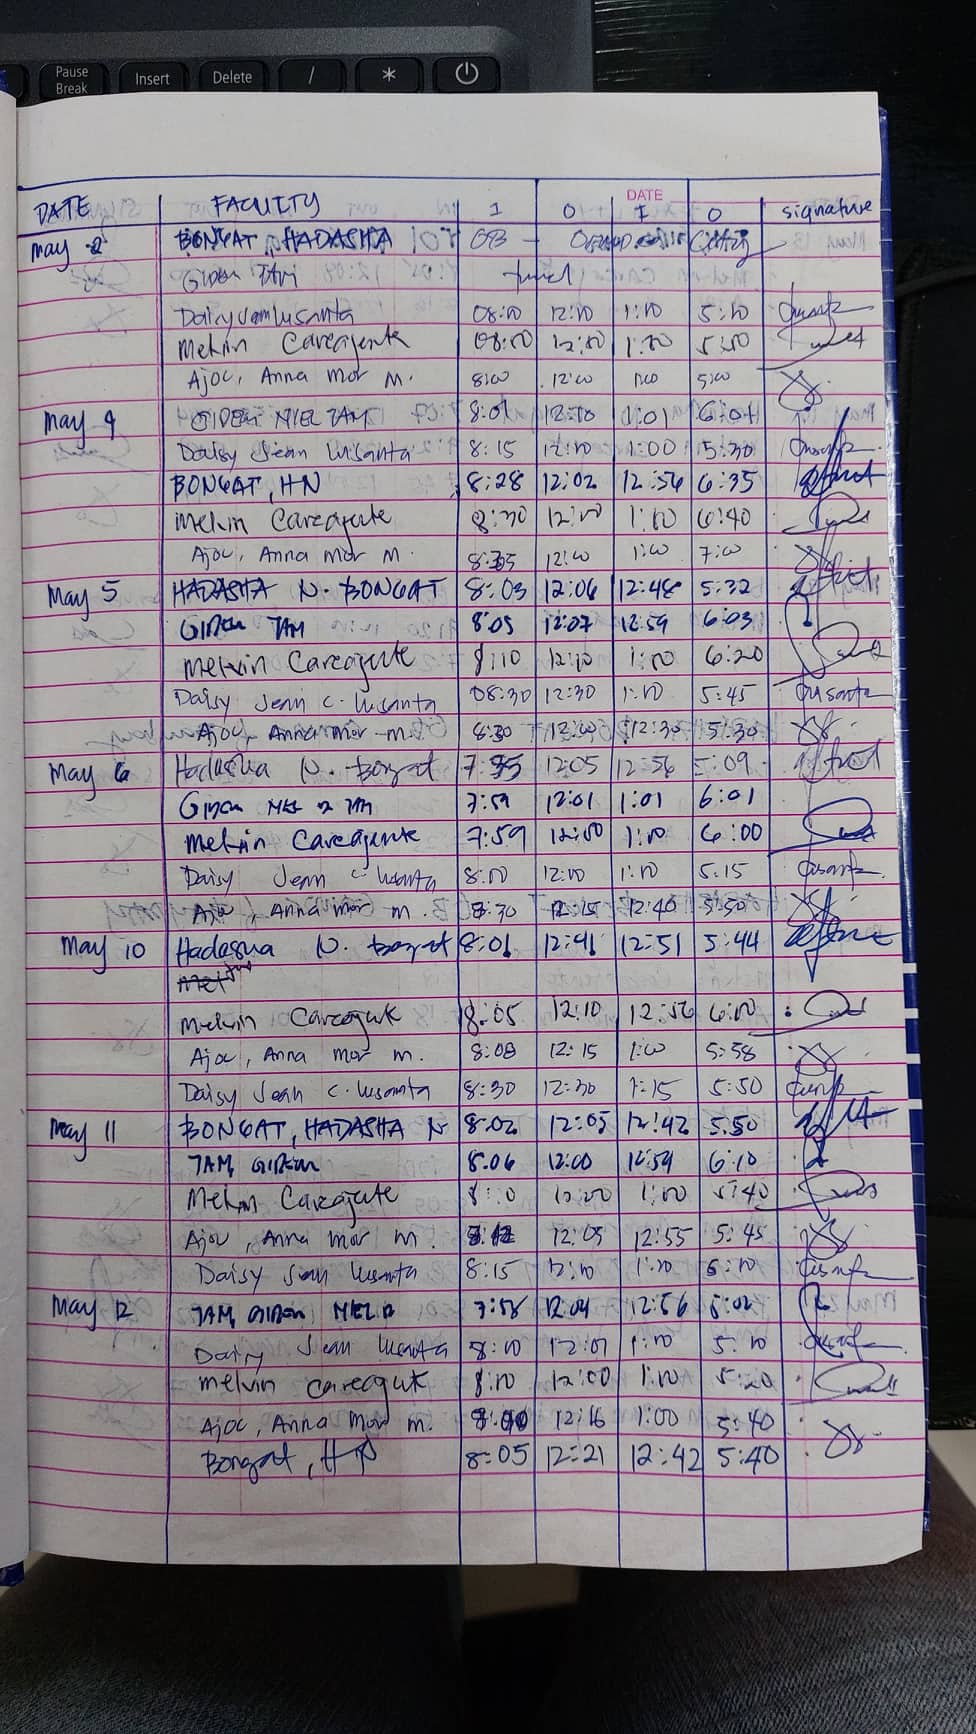 Pause Break Insert Delete / *
DATE
DATE FACULTY I O I O signature
May 2 BONGAT, HADASHA OB -
GIDEN TAM
Daisy Jean Lusanta 08:00 12:00 1:00 5:00
Melvin Carcajente 08:00 12:00 1:00 5:00
Ajoc, Anna Mor M. 8:00 12:00 1:00 5:00
May 4 GIDEN NIEL TAM 8:01 12:10 1:01 6:01
Daisy Jean Lusanta 8:15 12:00 1:00 5:30
BONGAT, HN 8:28 12:02 12:56 6:35
Melvin Carcajente 8:30 12:00 1:00 6:40
Ajoc, Anna Mor M. 8:35 12:00 1:00 7:00
May 5 HADASHA N. BONGAT 8:03 12:06 12:48 5:32
GIDEN TAM 8:05 12:07 12:59 6:03
Melvin Carcajente 8:10 12:10 1:00 6:20
Daisy Jean C. Lusanta 08:30 12:30 1:00 5:45
Ajoc, Anna Mor M. 8:30 12:00 12:30 5:30
May 6 Hadasha N. Bongat 7:55 12:05 12:56 5:09
Giden 7:59 12:01 1:01 6:01
Melvin Carcajente 7:59 12:00 1:00 6:00
Daisy Jean C. Lusanta 8:00 12:00 1:00 5:15
Ajoc, Anna Mor M. 8:30 12:15 12:40 5:50
May 10 Hadasha N. Bongat 8:01 12:41 12:51 5:44
Melvin Carcajente 8:05 12:10 12:56 6:00
Ajoc, Anna Mor M. 8:08 12:15 1:00 5:58
Daisy Jean C. Lusanta 8:30 12:30 1:15 5:50
May 11 BONGAT, HADASHA N 8:02 12:05 12:42 5:50
TAM, GIDEN 8:06 12:00 12:59 6:10
Melvin Carcajente 8:10 12:00 1:00 5:40
Ajoc, Anna Mor M. 12:05 12:55 5:45
Daisy Jean Lusanta 8:15 12:10 1:10
May 12 TAM, GIDEN NIEL 7:58 12:04 12:56
Daisy Jean Lusanta 8:00 12:01 1:10 5:10
Melvin Carcajente 8:10 12:00 1:10 5:20
Ajoc, Anna Mor M. 12:16 1:00 5:40
Bongat, HN 8:05 12:21 12:42 5:40